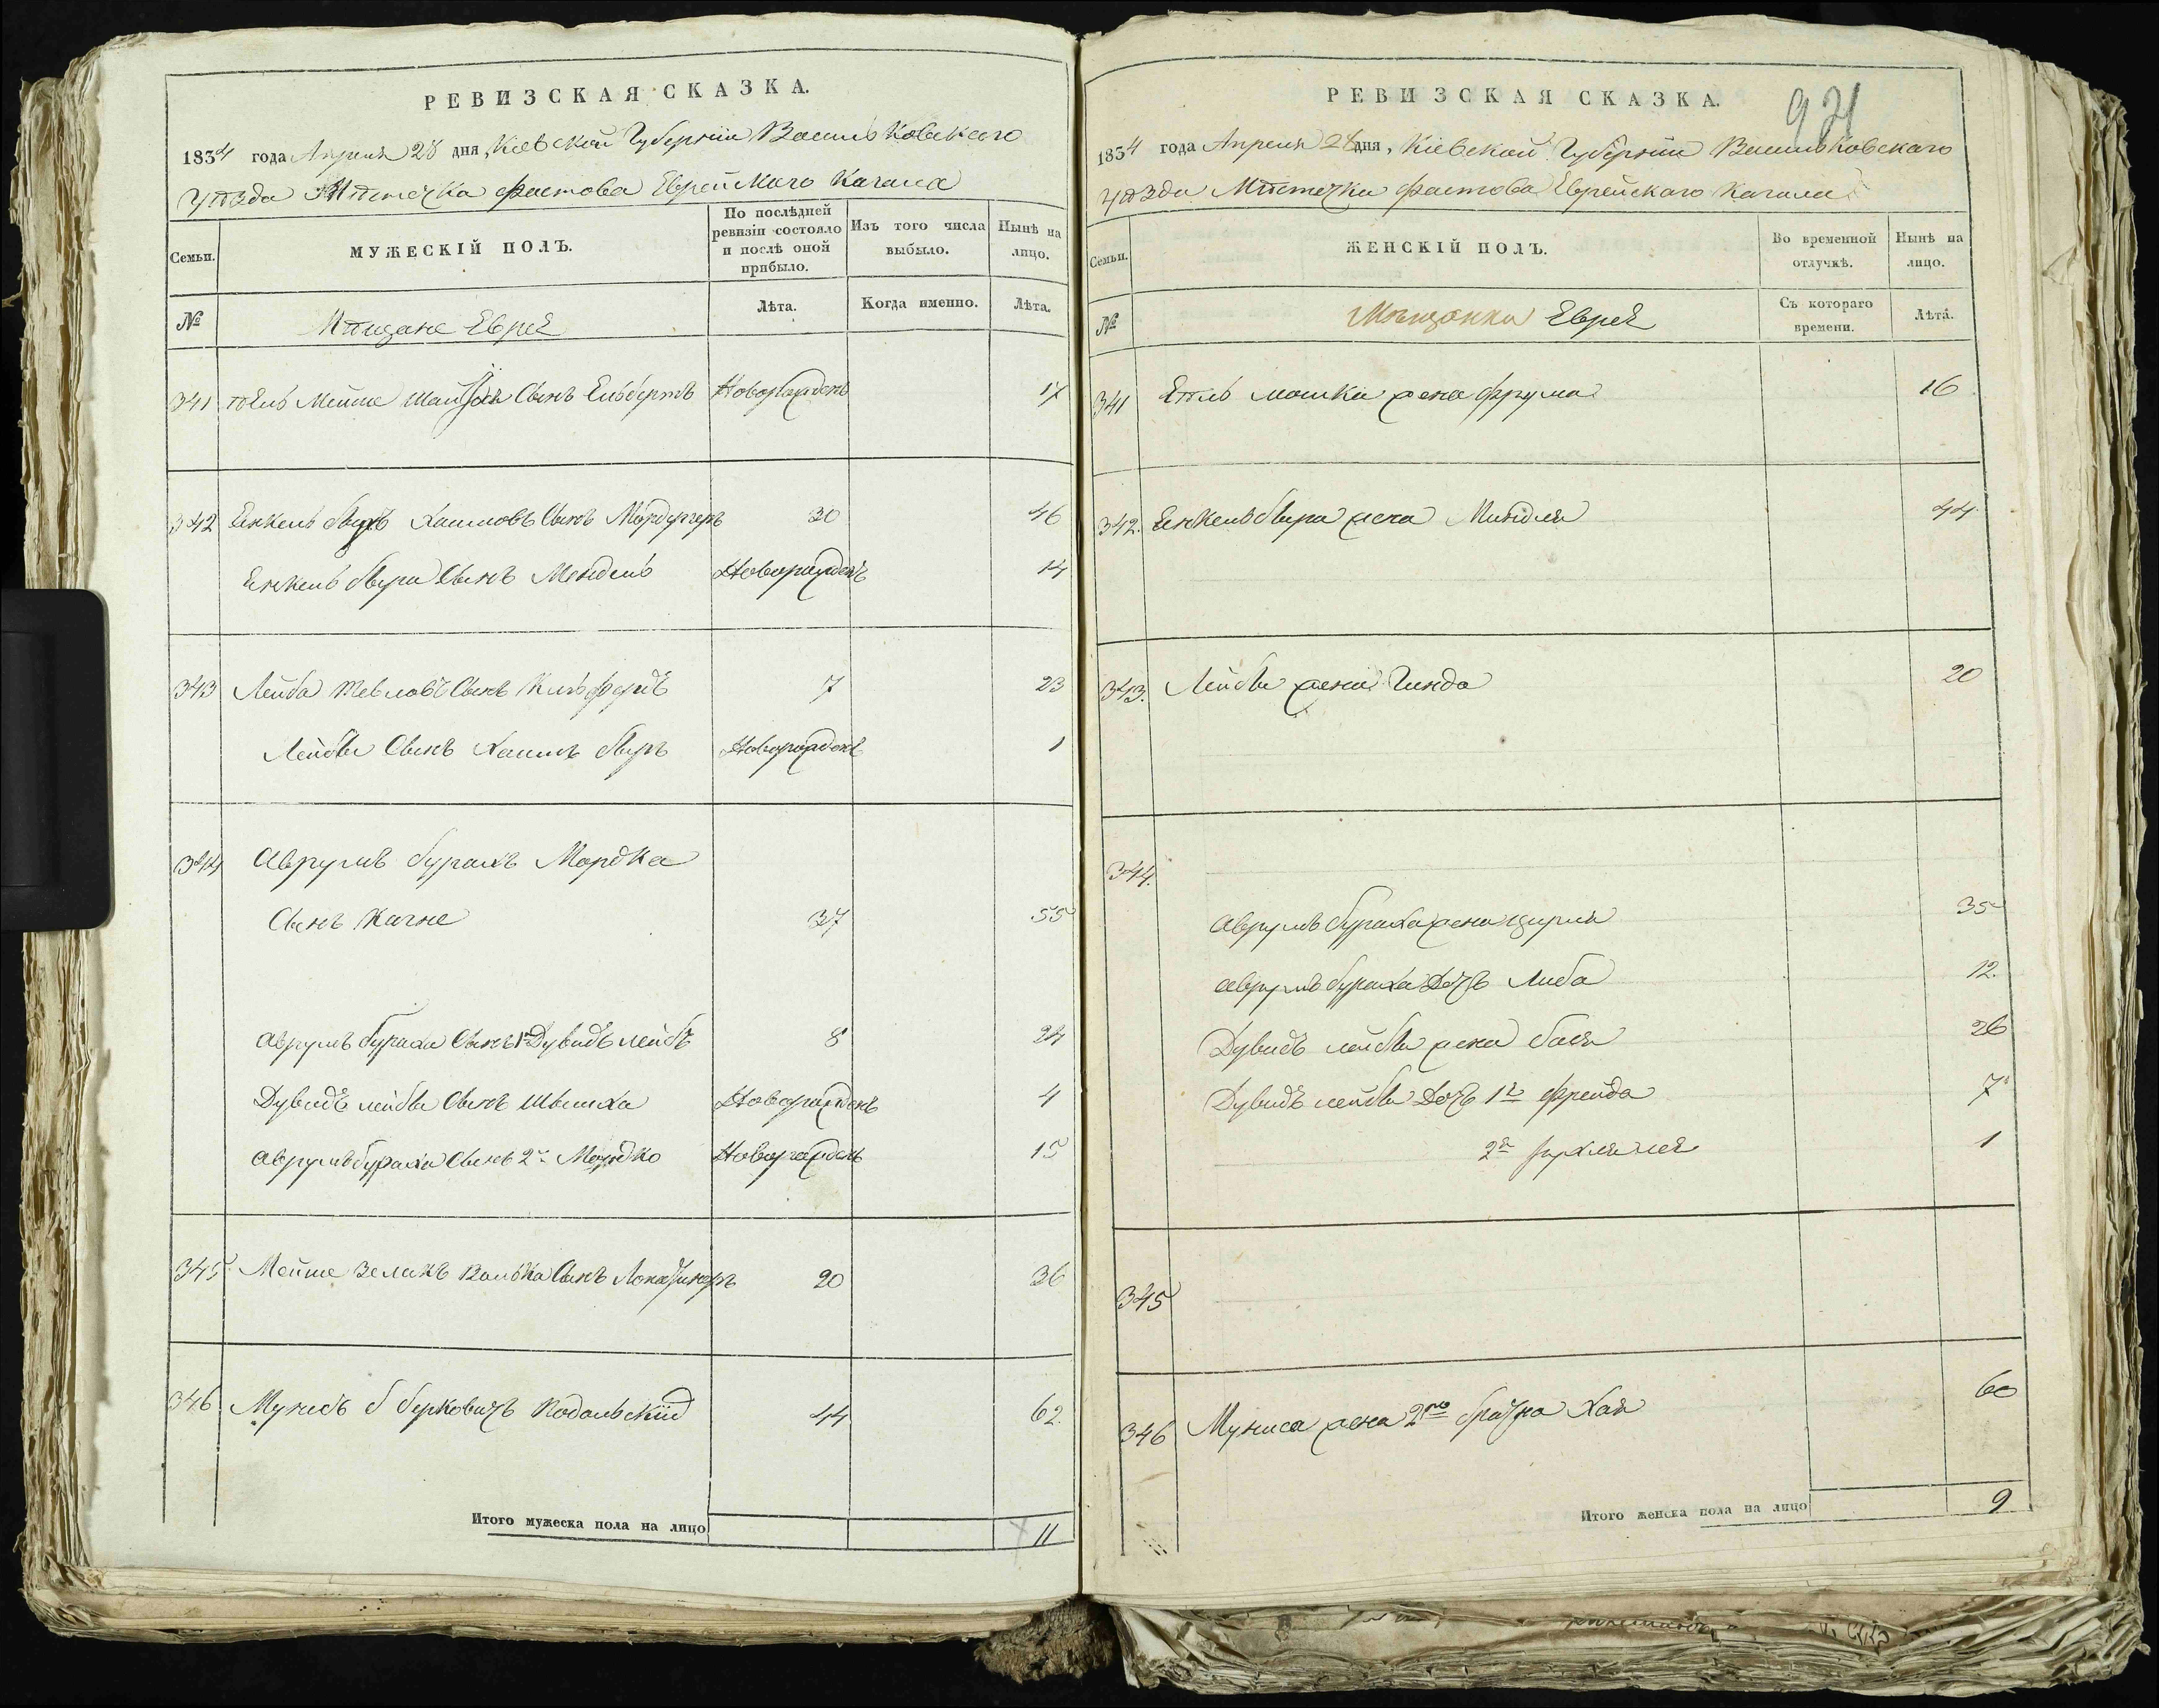 РЕВИЗСКАЯ СКАЗКА.
1834 года Апреля 28 дня, Кіевской Губерніи Васильковскаго
уѣзда Мѣстечка Фастова Еврейскаго Кагала
Семьи.
МУЖЕСКІЙ ПОЛЪ.
По послѣдней ревизіи состояло и послѣ оной прибыло.
Изъ того числа выбыло.
Нынѣ на лицо.
№
Мѣщане Евреи
Лѣта.
Когда именно.
Лѣта.
341 Мейше Сынъ Новорожденъ 17
342 Енкель Хаимовъ Сынъ 30 46
Енкель Сынъ Мендель Новорожденъ 14
343 Лейба Тевловъ Сынъ 7 23
Лейбы Сынъ Хаимъ Новорожденъ 1
344 Аврумъ бурахъ Мордка
Сынъ Кагне 37 55
Аврумъ бураха Сынъ 1й Дувидъ лейбъ 8 24
Дувидъ лейбы Сынъ Новорожденъ 4
Аврумъ бураха Сынъ 2й Мордко Новорожденъ 15
345 Мейше Зелихъ Волька Сынъ 20 36
346 Берковичъ Подольскій 44 62.
Итого мужеска пола на лицо 11
РЕВИЗСКАЯ СКАЗКА.
921
1834 года Апреля 28 дня, Кіевской Губерніи Васильковскаго
уѣзда Мѣстечка Фастова Еврейскаго Кагала
Семьи.
ЖЕНСКІЙ ПОЛЪ.
Во временной отлучкѣ.
Нынѣ на лицо.
№
Мѣщанки Евреи
Съ котораго времени.
Лѣта.
341 мошки жена Фрума 16
342. Енкель жена Миндля 44
343. Лейбы жена Гинда 20
344.
Аврумъ бураха жена Цирля 35
Аврумъ бураха Дочь Либа 12.
Дувидъ лейбы жена бася 26
Дувидъ лейбы Дочь 1я Фрейда 7
2я 1
345
346 Муниса жена 2го брачна Хая 60
Итого женска пола на лицо 9